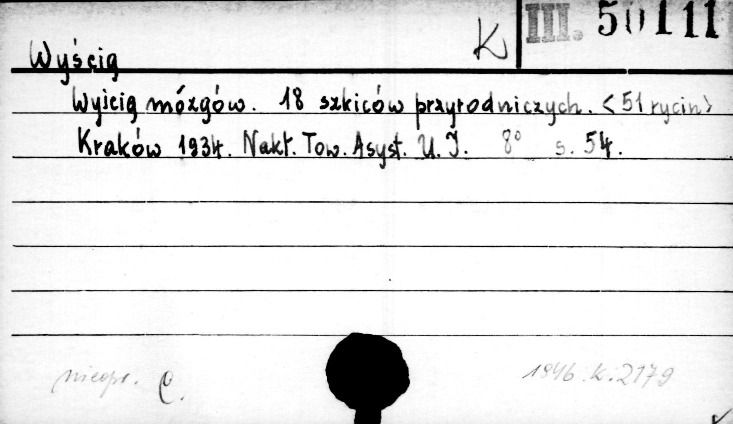 K III. 50111
Wyścig
Wyścig mózgów. 18 szkiców przyrodniczych. <51 rycin>
Kraków 1934. Nakł. Tow. Asyst. U. J. 8° s. 54.
nieopr. C. 1846.K.2179